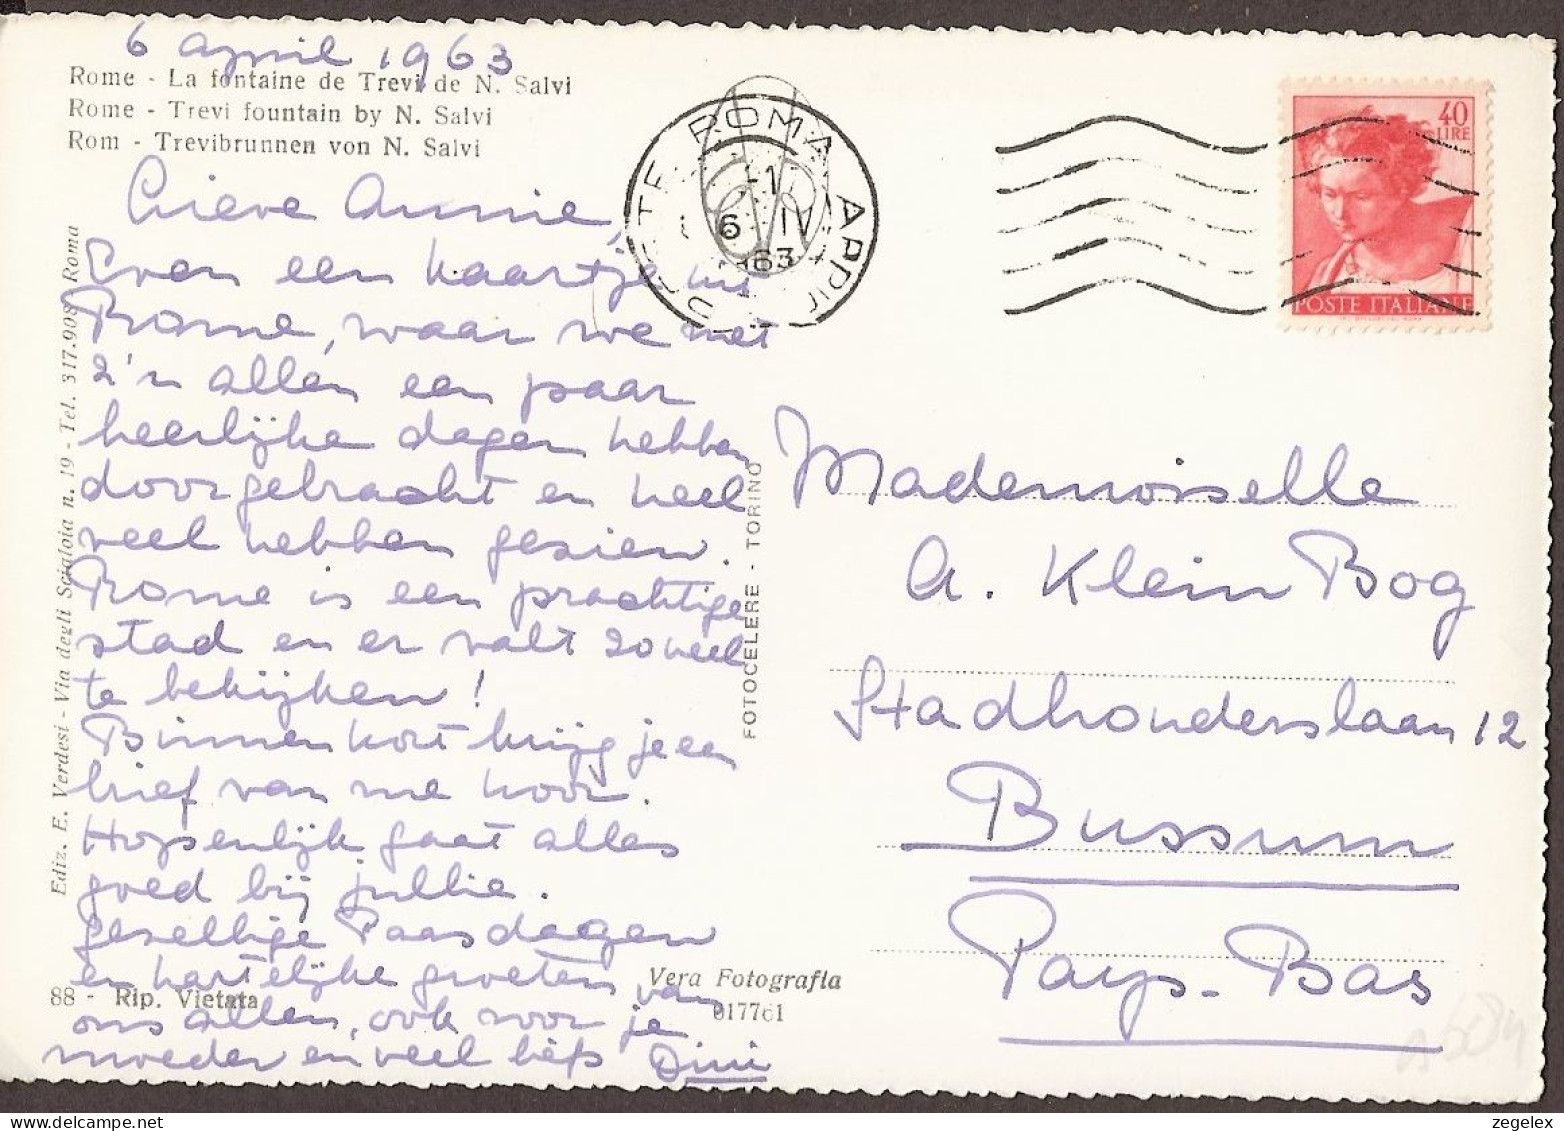 6 april 1963
Rome - La fontaine de Trevi de N. Salvi
Rome - Trevi fountain by N. Salvi
Rom - Trevibrunnen von N. Salvi
Lieve Annie,
Even een kaartje uit
Rome, waar we met
z'n allen een paar
heerlijke dagen hebben
doorgebracht en heel
veel hebben gezien.
Rome is een prachtige
stad en er valt zoveel
te bekijken!
Binnenkort krijg je een
brief van me hoor.
Hopenlijk gaat alles
goed bij jullie.
Gezellige Paasdagen
en hartelijke groeten van
ons allen, ook voor je
moeder en veel liefs Dini
88 - Rip. Vietata
Vera Fotografia
017761
Ediz. E. Verdesi - Via degli Scialoia n. 19 - Tel. 317.908 Roma
FOTOCELERE - TORINO
ROMA APPIO
-1
6 IV
63
40
LIRE
POSTE ITALIANE
Mademoiselle
A. Klein Bog
Stadhouderslaan 12
Bussum
Pays-Bas
zegelex